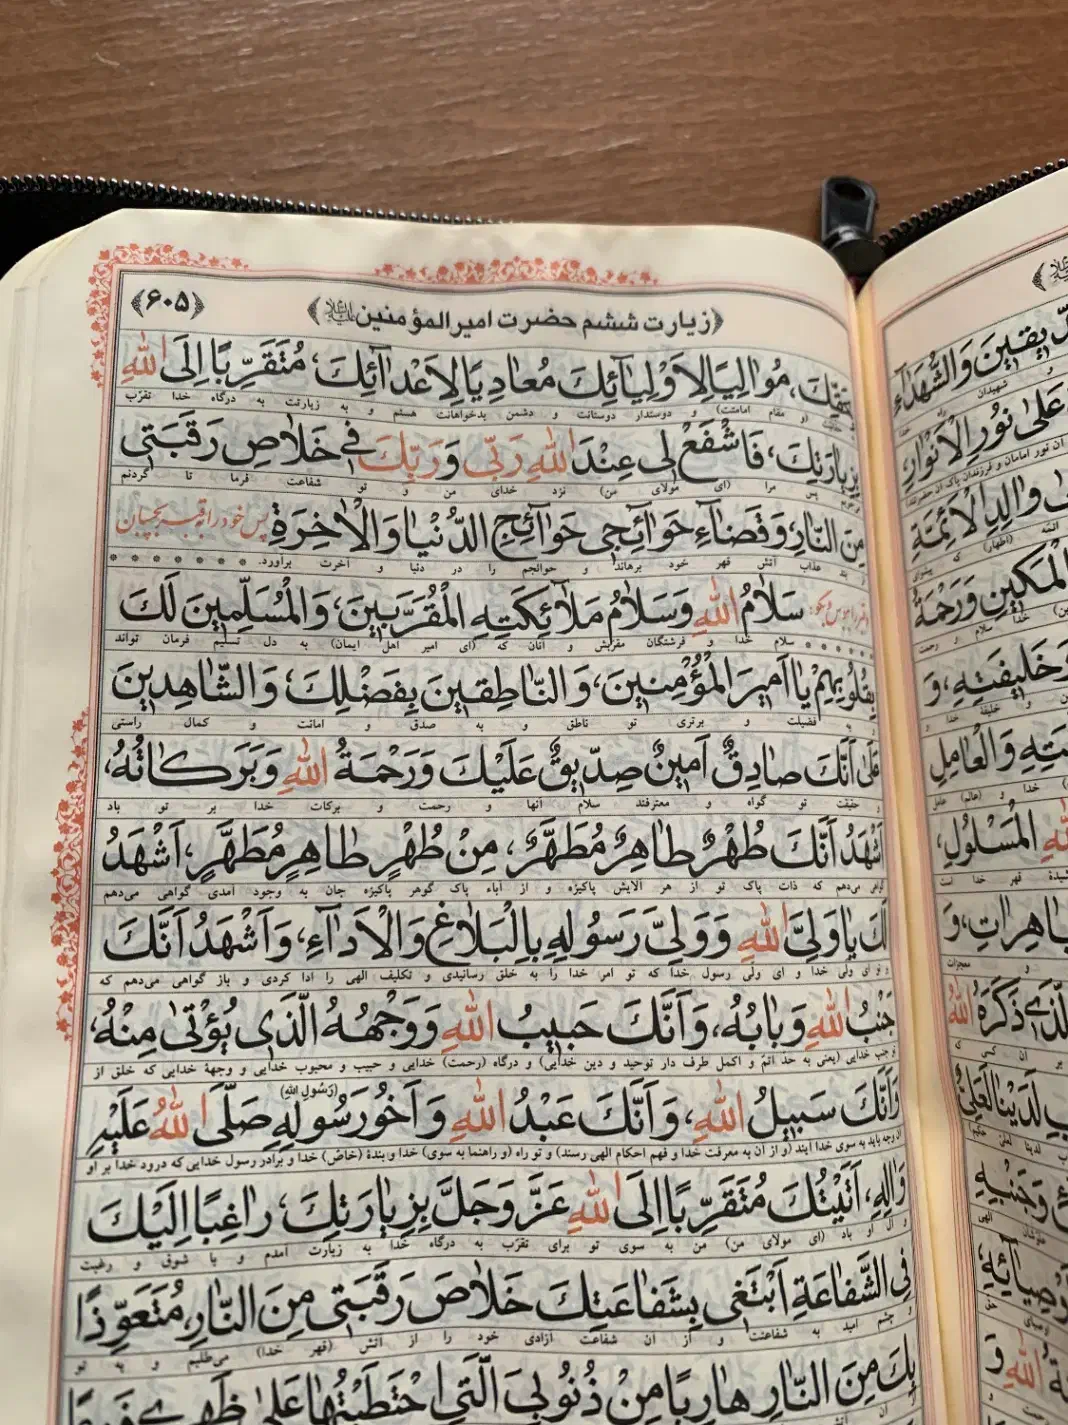 ﴿زیارت ششم حضرت امیرالمؤمنین علیه‌السلام﴾
﴿۶۰۵﴾
مُوٰالِیًا لِاَوْلِیٰآئِكَ مُعٰادِیًا لِاَعْدٰآئِكَ، مُتَقَرِّبًا اِلَى اللهِ
(و مقام امامتت) و دوستدار دوستانت و دشمن بدخواهانت هستم و به زیارتت به درگاه خدا تقرّب
بِزِیٰارَتِكَ، فَاشْفَعْ لى عِنْدَ اللهِ رَبّى وَ رَبِّكَ فى خَلٰاصِ رَقَبَتى
پس مرا (ای مولای من) نزد خدای من و تو شفاعت فرما تا گردنم
مِنَ النّٰارِ، وَ قَضٰآءِ حَوٰآئِجى حَوٰآئِجِ الدُّنْیٰا وَ الْاٰخِرَةِ پس خود را به قبر بچسبان
بند عذاب آتش قهر خود برهاند و حوائجم را در دنیا و آخرت برآورد.
و قبر را ببوس و بگو: سَلٰامُ اللهِ وَ سَلٰامُ مَلٰآئِكَتِهِ الْمُقَرَّبینَ، وَ الْمُسَلِّمینَ لَكَ
سلام خدا و فرشتگان مقرّبش و آنان که (ای امیر اهل ایمان) به دل تسلیم فرمان تواند
بِقُلُوبِهِمْ یٰا اَمیرَ الْمُؤْمِنینَ، وَ النّٰاطِقینَ بِفَضْلِكَ، وَ الشّٰاهِدینَ
و به فضیلت و برتری تو ناطق و به صدق و امانت و کمال راستی
عَلىٰ اَنَّكَ صٰادِقٌ اَمینٌ صِدّیقٌ عَلَیْكَ وَ رَحْمَةُ اللهِ وَ بَرَكٰاتُهُ،
و حقیقت تو گواه و معترفند سلام آنها و رحمت و برکات خدا بر تو باد
اَشْهَدُ اَنَّكَ طُهْرٌ طٰاهِرٌ مُطَهَّرٌ، مِنْ طُهْرٍ طٰاهِرٍ مُطَهَّرٍ، اَشْهَدُ
گواهی می‌دهم که ذات پاک تو از هر آلایش پاکیزه و از آباء پاک گوهر پاکیزه جان به وجود آمدی گواهی می‌دهم
لَكَ یٰا وَلِىَّ اللهِ وَ وَلِىَّ رَسُولِهِ بِالْبَلٰاغِ وَ الْاَدٰآءِ، وَ اَشْهَدُ اَنَّكَ
و تو ای ولی خدا و ای ولی رسول خدا که تو امر خدا را به خلق رسانیدی و تکلیف الهی را ادا کردی و باز گواهی می‌دهم که
جَنْبُ اللهِ وَ بٰابُهُ، وَ اَنَّكَ حَبیبُ اللهِ وَ وَجْهُهُ الَّذى یُؤْتىٰ مِنْهُ،
تو جنب خدایی (یعنی به حد اتم و اکمل طرف دار توحید و دین خدایی) و درگاه (رحمت) خدایی و حبیب و محبوب خدایی و وجههٔ خدایی که خلق از
وَ اَنَّكَ سَبیلُ اللهِ، وَ اَنَّكَ عَبْدُ اللهِ وَ اَخُو رَسُولِهِ (رَسُولِ اللهِ) صَلَّى اللهُ عَلَیْهِ
آن وجه باید به سوی خدا آیند (و از آن به معرفت خدا و فهم احکام الهی رسند) و تو راه (و راهنما به سوی) خدا و بندهٔ (خاص) خدا و برادر رسول خدایی که درود خدا بر او
وَ اٰلِهِ، اَتَیْتُكَ مُتَقَرِّبًا اِلَى اللهِ عَزَّ وَ جَلَّ بِزِیٰارَتِكَ، رٰاغِبًا اِلَیْكَ
و آل او باد (ای مولای من) من به سوی تو برای تقرّب به درگاه خدا به زیارت آمدم و با شوق و رغبت
فِى الشَّفٰاعَةِ اَبْتَغى بِشَفٰاعَتِكَ خَلٰاصَ رَقَبَتى مِنَ النّٰارِ، مُتَعَوِّذًا
و چشم امید به شفاعتت و از آن شفاعت آزادی خود را از آتش (قهر خدا) می‌طلبم و به تو
بِكَ مِنَ النّٰارِ هٰارِبًا مِنْ ذُنُوبِىَ الَّتِى احْتَطَبْتُهٰا عَلىٰ ظَهْرى
یَقینَ وَ الشُّهَدٰآءِ
شهیدان
عَلىٰ نُورِ الْاَنْوٰارِ،
وَ وٰالِدِ الْاَئِمَّةِ
وَ رَحْمَةُ
وَ خَلیفَتِهِ، وَ
وَ الْعٰامِلِ
اللهِ الْمَسْلُولِ،
وَ
الَّذى ذَكَرَهُ اللهُ
لَدَیْنٰا لَعَلِىٌّ
وَ جَنْبِهِ
اللهِ وَ